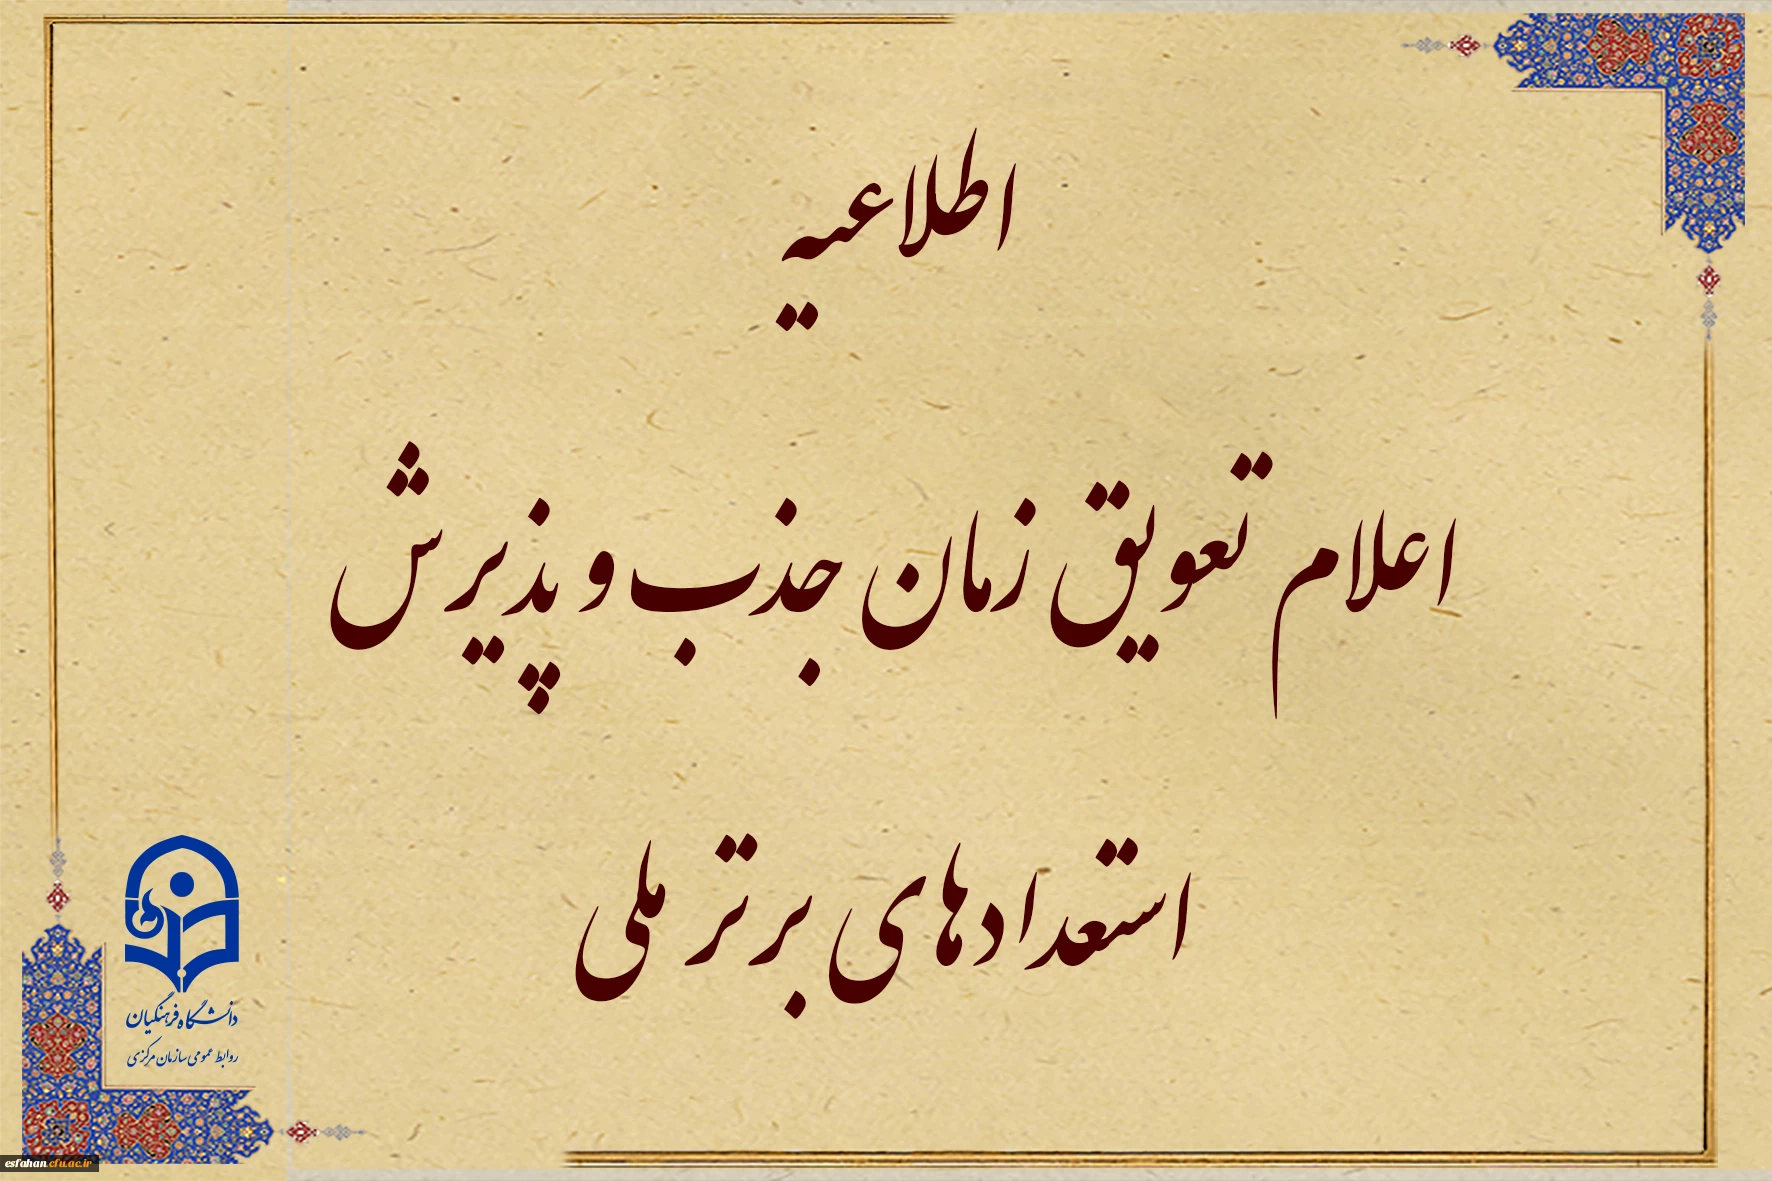 اطلاعیه
اعلام تعویق زمان جذب و پذیرش
استعدادهای برتر ملی
دانشگاه فرهنگیان
روابط عمومی سازمان مرکزی
esfahan.cfu.ac.ir